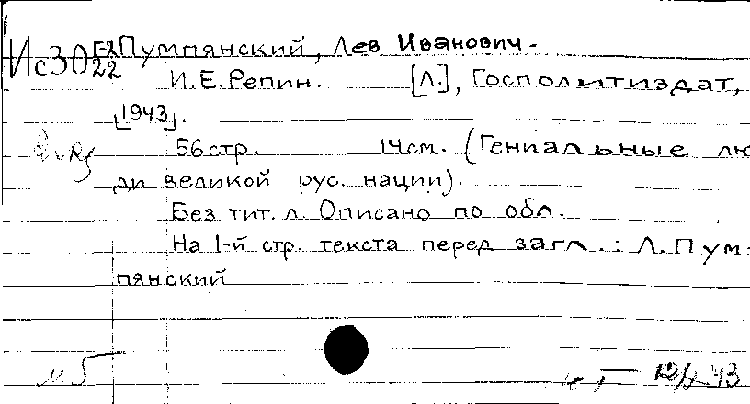 Ис30 Г-2 Пумпянский, Лев Иванович.
22
И.Е.Репин. [Л.], Госполитиздат,
[1943].
56 стр. 14 см. (Гениальные лю-
ди великой рус. нации).
Без тит. л. Описано по обл.
На 1-й стр. текста перед загл.: Л. Пум-
пянский